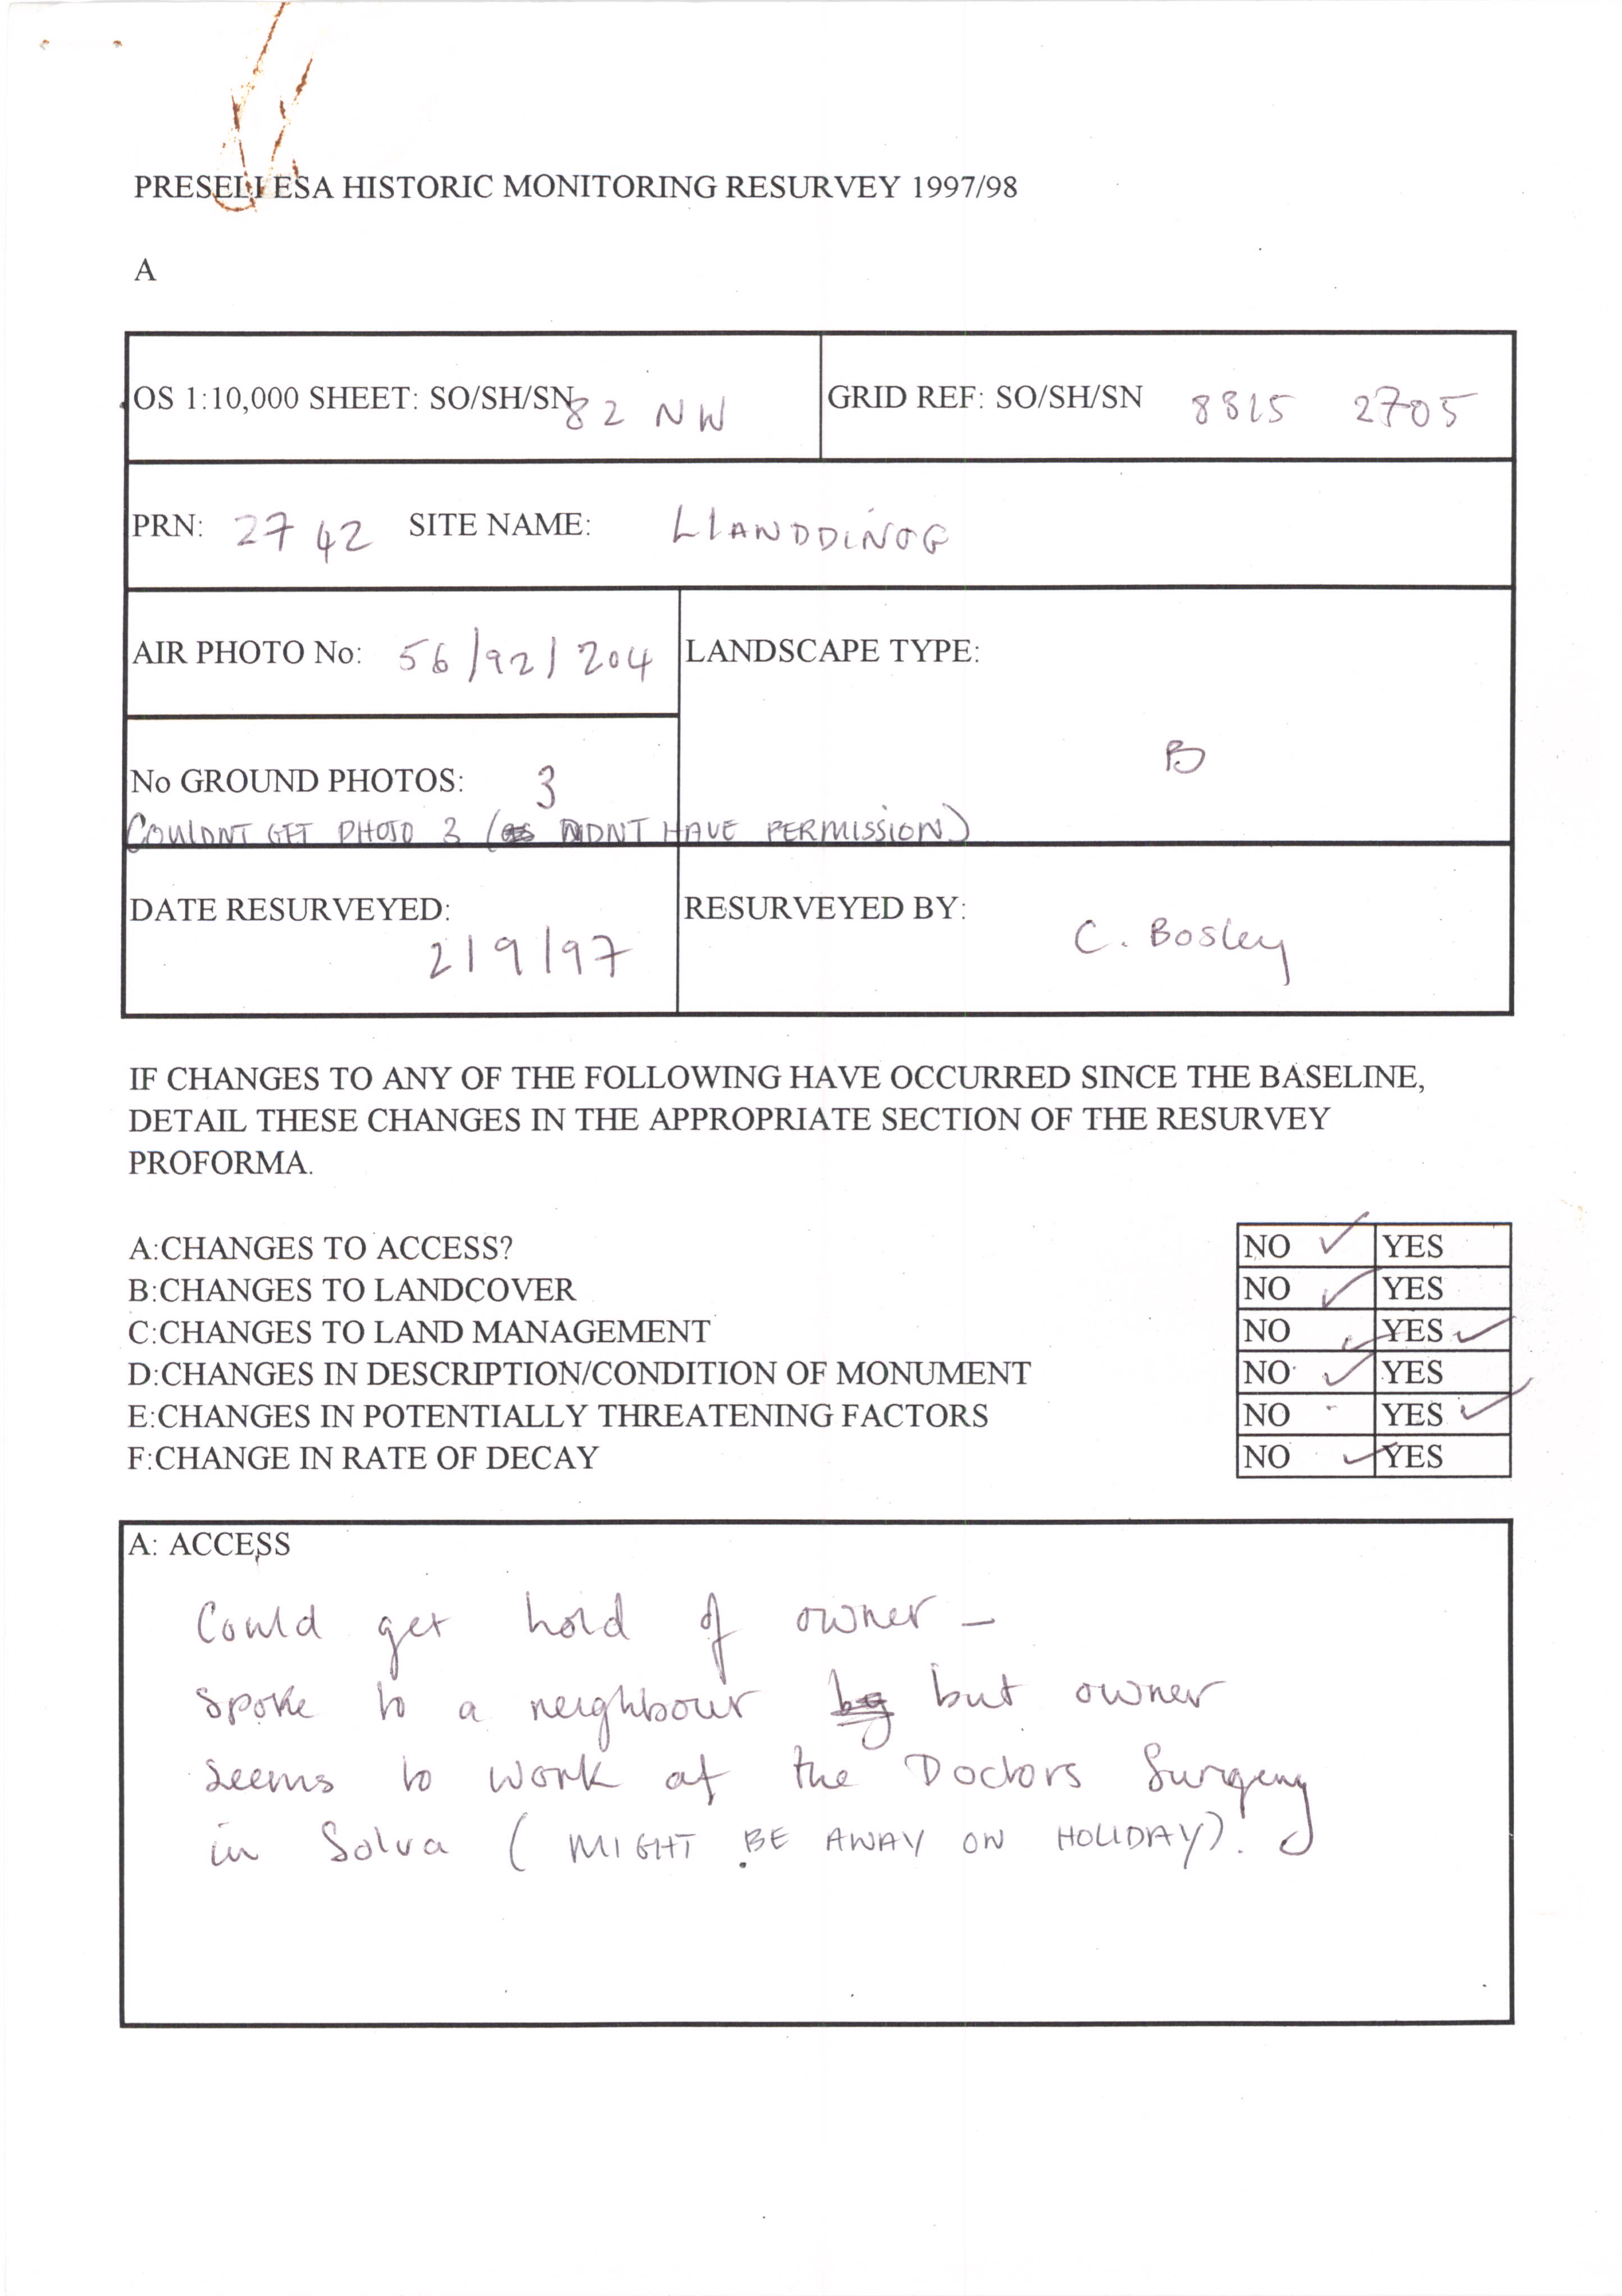 PRESELI ESA HISTORIC MONITORING RESURVEY 1997/98
A
OS 1:10,000 SHEET: SO/SH/SN 82 NW
GRID REF: SO/SH/SN 8315 2705
PRN: 2742 SITE NAME: LLANDDINOG
AIR PHOTO No: 56/92/204
LANDSCAPE TYPE:
B
No GROUND PHOTOS: 3
COULDNT GET PHOTO 3 (DIDNT HAVE PERMISSION)
DATE RESURVEYED:
2/9/97
RESURVEYED BY:
C. Bosley
IF CHANGES TO ANY OF THE FOLLOWING HAVE OCCURRED SINCE THE BASELINE,
DETAIL THESE CHANGES IN THE APPROPRIATE SECTION OF THE RESURVEY
PROFORMA.
A:CHANGES TO ACCESS? NO ✓ YES
B:CHANGES TO LANDCOVER NO ✓ YES
C:CHANGES TO LAND MANAGEMENT NO YES ✓
D:CHANGES IN DESCRIPTION/CONDITION OF MONUMENT NO ✓ YES
E:CHANGES IN POTENTIALLY THREATENING FACTORS NO YES ✓
F:CHANGE IN RATE OF DECAY NO ✓ YES
A: ACCESS
Could get hold of owner –
spoke to a neighbour but owner
seems to work at the Doctors Surgery
in Solva (MIGHT BE AWAY ON HOLIDAY).